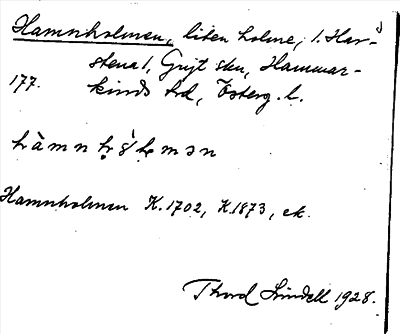 Hamnholmen, liten holme, i. Har-
stena 1, Gryt skn, Hammar-
177. kinds hd, Österg. l.
Hamnholmen K. 1702, K. 1873, ek.
Thord Lindell 1928.